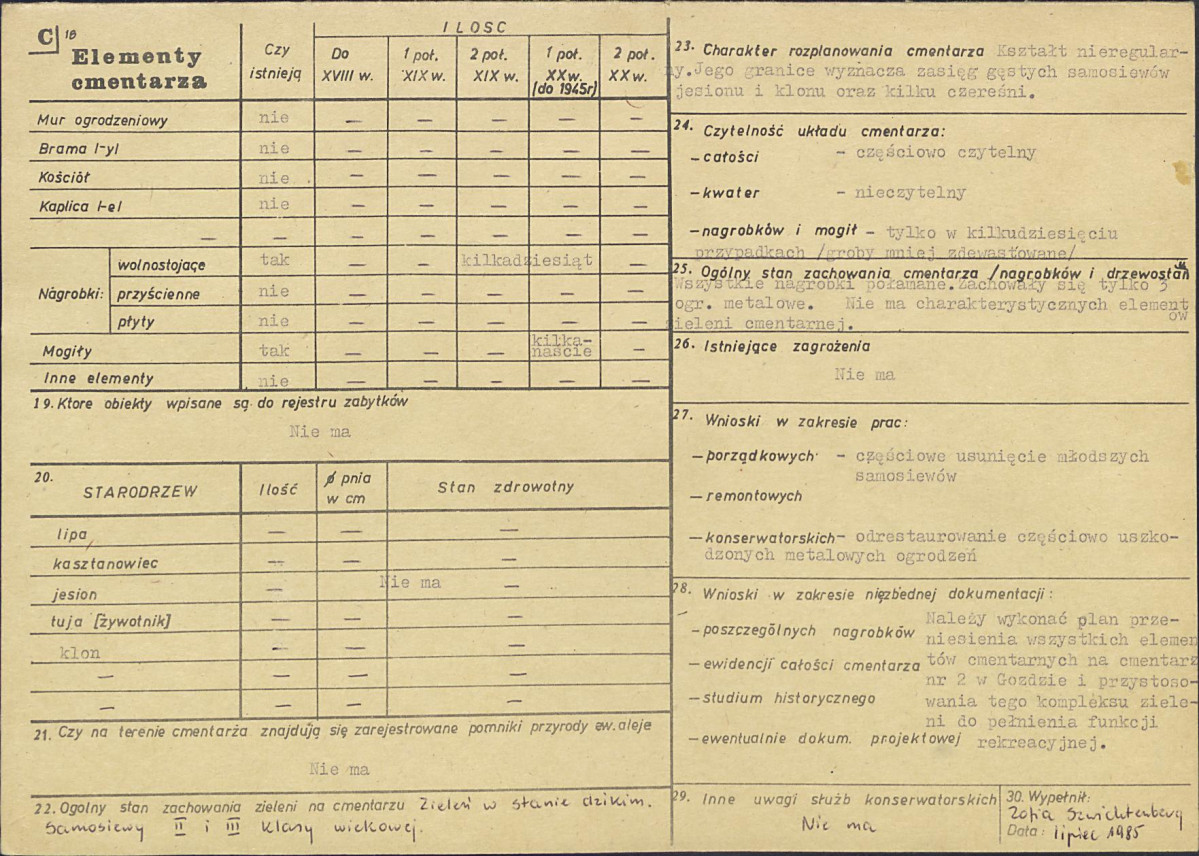 C 18 Elementy cmentarza
Czy istnieją
ILOSC
Do XVIII w.
1 poł. XIX w.
2 poł. XIX w.
1 poł. XX w. (do 1945r)
2 poł. XX w.
Mur ogrodzeniowy nie — — — — —
Brama l-yl nie — — — — —
Kościół nie — — — — —
Kaplica l-el nie — — — — —
— — — — — — —
Nagrobki:
wolnostojące tak — — kilkadziesiąt —
przyścienne nie — — — — —
płyty nie — — — — —
Mogiły tak — — — kilka-naście —
Inne elementy nie — — — — —
19. Ktore obiekty wpisane są do rejestru zabytków
Nie ma
20. STARODRZEW Ilość ø pnia w cm Stan zdrowotny
lipa — — —
kasztanowiec — — —
jesion — — Nie ma —
tuja [żywotnik] — — —
klon - — —
— — — —
— — — —
21. Czy na terenie cmentarża znajdują się zarejestrowane pomniki przyrody ew. aleje
Nie ma
22. Ogolny stan zachowania zieleni na cmentarzu Zieleń w stanie dzikim.
Samosiewy II i III klasy wiekowej.
23. Charakter rozplanowania cmentarza Kształt nieregular-
ny. Jego granice wyznacza zasięg gęstych samosiewów
jesionu i klonu oraz kilku czereśni.
24. Czytelność układu cmentarza:
— całości - częściowo czytelny
— kwater - nieczytelny
— nagrobków i mogił - tylko w kilkudziesięciu
przypadkach /groby mniej zdewastowane/
25. Ogólny stan zachowania cmentarza /nagrobków i drzewostan
Wszystkie nagrobki połamane. Zachowały się tylko 3
ogr. metalowe. Nie ma charakterystycznych element
ów
zieleni cmentarnej.
26. Istniejące zagrożenia
Nie ma
27. Wnioski w zakresie prac:
— porządkowych - częściowe usunięcie młodszych
samosiewów
— remontowych
— konserwatorskich - odrestaurowanie częściowo uszko-
dzonych metalowych ogrodzeń
28. Wnioski w zakresie niezbędnej dokumentacji:
— poszczególnych nagrobków
— ewidencji całości cmentarza
— studium historycznego
— ewentualnie dokum. projektowej
Należy wykonać plan prze-
niesienia wszystkich elemen
tów cmentarnych na cmentarz
nr 2 w Gozdzie i przystoso-
wania tego kompleksu ziele-
ni do pełnienia funkcji
rekreacyjnej.
29. Inne uwagi służb konserwatorskich
Nie ma
30. Wypełnił:
Zofia Szwichtenberg
Data: lipiec 1985